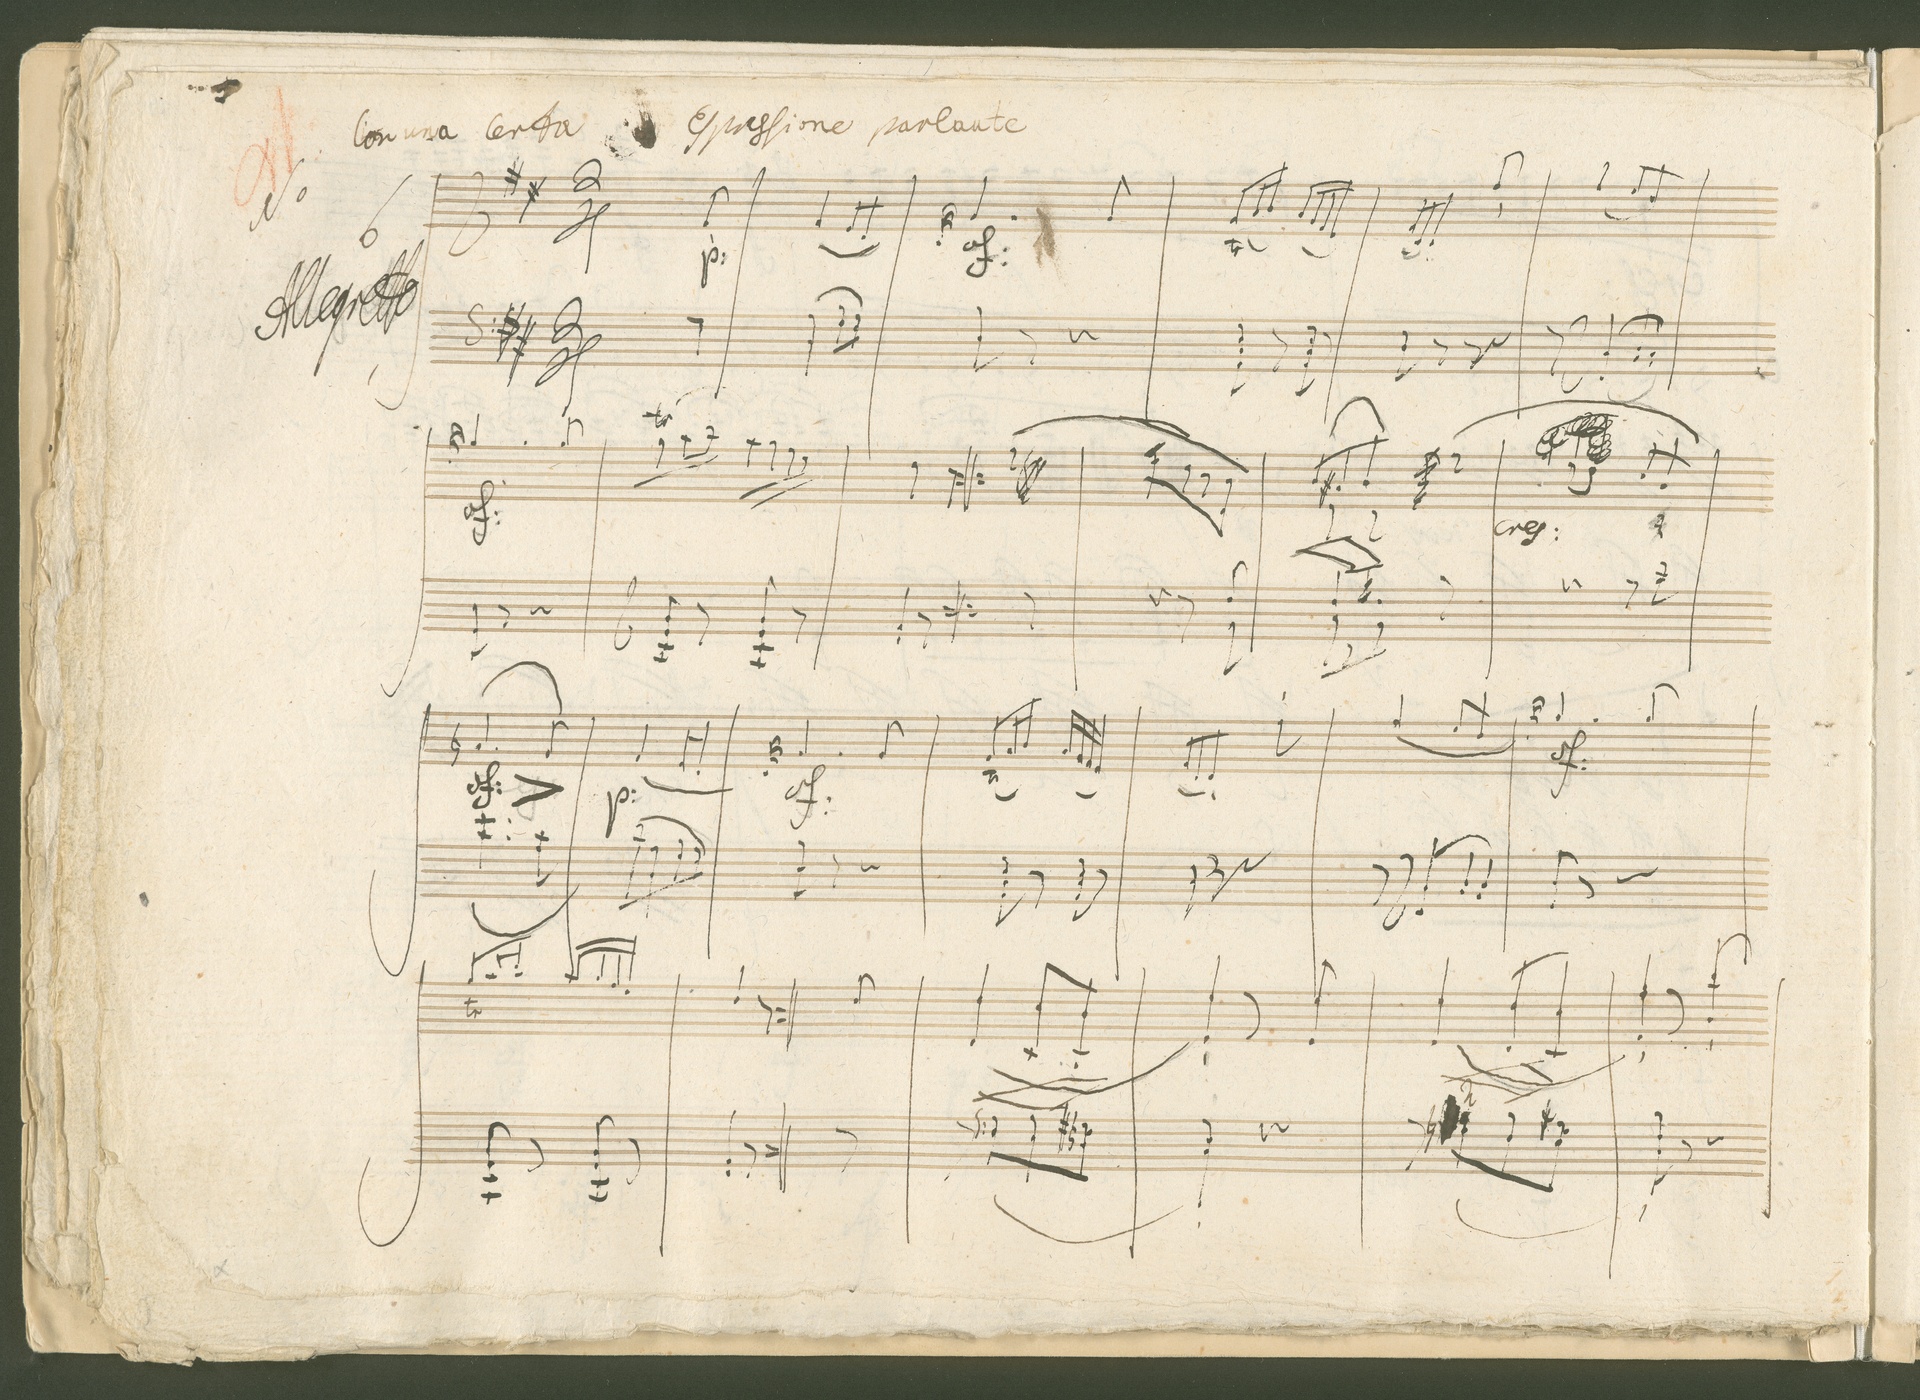 Con una certa Espressione parlante
No 6
Allegretto
2 4
p: sf:
tr
2 4
tr
sf:
cres:
sf: p: sf: sf:
tr
tr